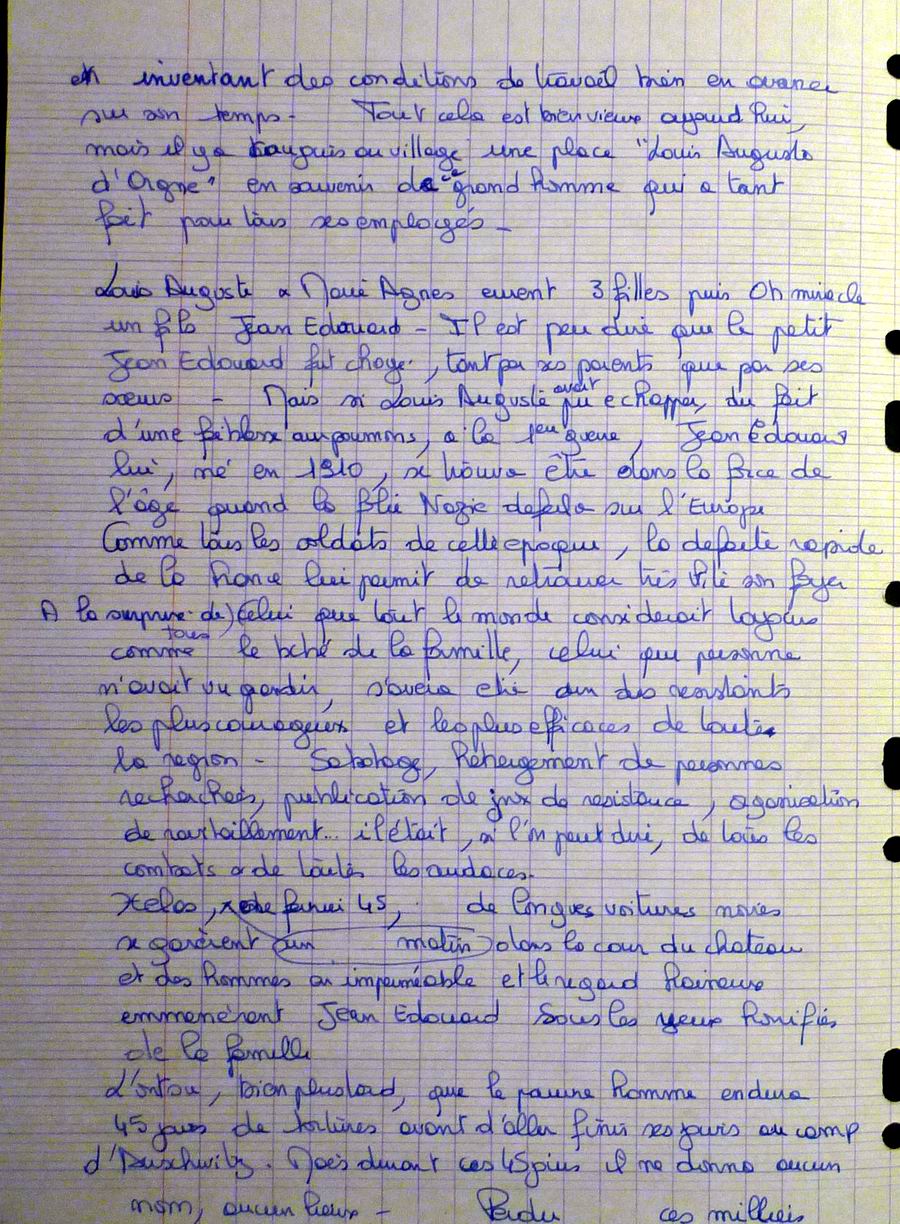 en inventant des conditions de travail bien en avance
sur son temps - Tout cela est bien vieux aujourd'hui,
mais il y a toujours au village une place "Louis Auguste
d'Orgne" en souvenir de ce grand homme qui a tant
fait pour tous ses employés -
Louis Auguste & Marie Agnes eurent 3 filles puis Oh miracle
un fils Jean Edouard - Il est peu dire que le petit
Jean Edouard fut choyé, tant par ses parents que par ses
sœurs - Mais si Louis Auguste avait pu echapper, du fait
d'une faiblesse aux poumons, a la guerre, Jean Edouard
lui, né en 1910, se trouva être dans la force de
l'âge quand la folie Nazie deferla sur l'Europe
Comme tous les soldats de cette epoque, la defaite rapide
de la France lui permit de retrouver très vite son foyer
A la surprise de) Celui que tout le monde considerait toujours
comme le bébé de la famille, celui que personne
n'avait vu grandir, s'avera etre un des resistants
les plus courageux et les plus efficaces de toute
la region - Sabotage, Hebergement de personnes
recherchées, publication de jnx de resistance, organisation
de ravitaillement... il était, si l'on peut dire, de tous les
combats & de toutes les audaces.
Helas, 45, de longues voitures noires
se garèrent un matin dans la cour du chateau
et des hommes en imperméable et le regard haineux
emmenèrent Jean Edouard sous les yeux horrifiés
de la famille
bien plus tard, que le pauvre homme endura
45 jours de tortures avant d'aller finir ses jours au camp
d'Auschwitz. Mais durant ces 45 jours il ne donna aucun
nom, aucun lieux - Perdu ces milliers